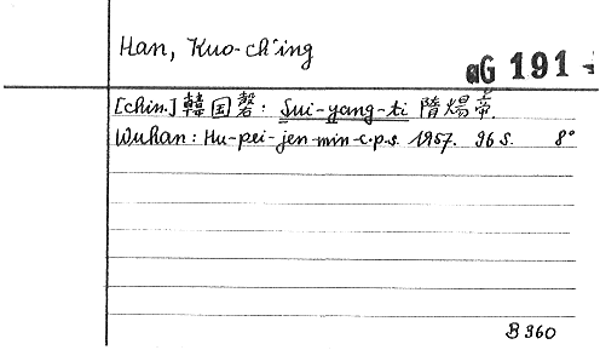 Han, Kuo-ch'ing
aG 191
[chin.] 韓国磬: Sui-yang-ti 隋煬帝.
Wuhan: Hu-pei-jen-min-c.p.s. 1957. 96 S. 8°
B 360